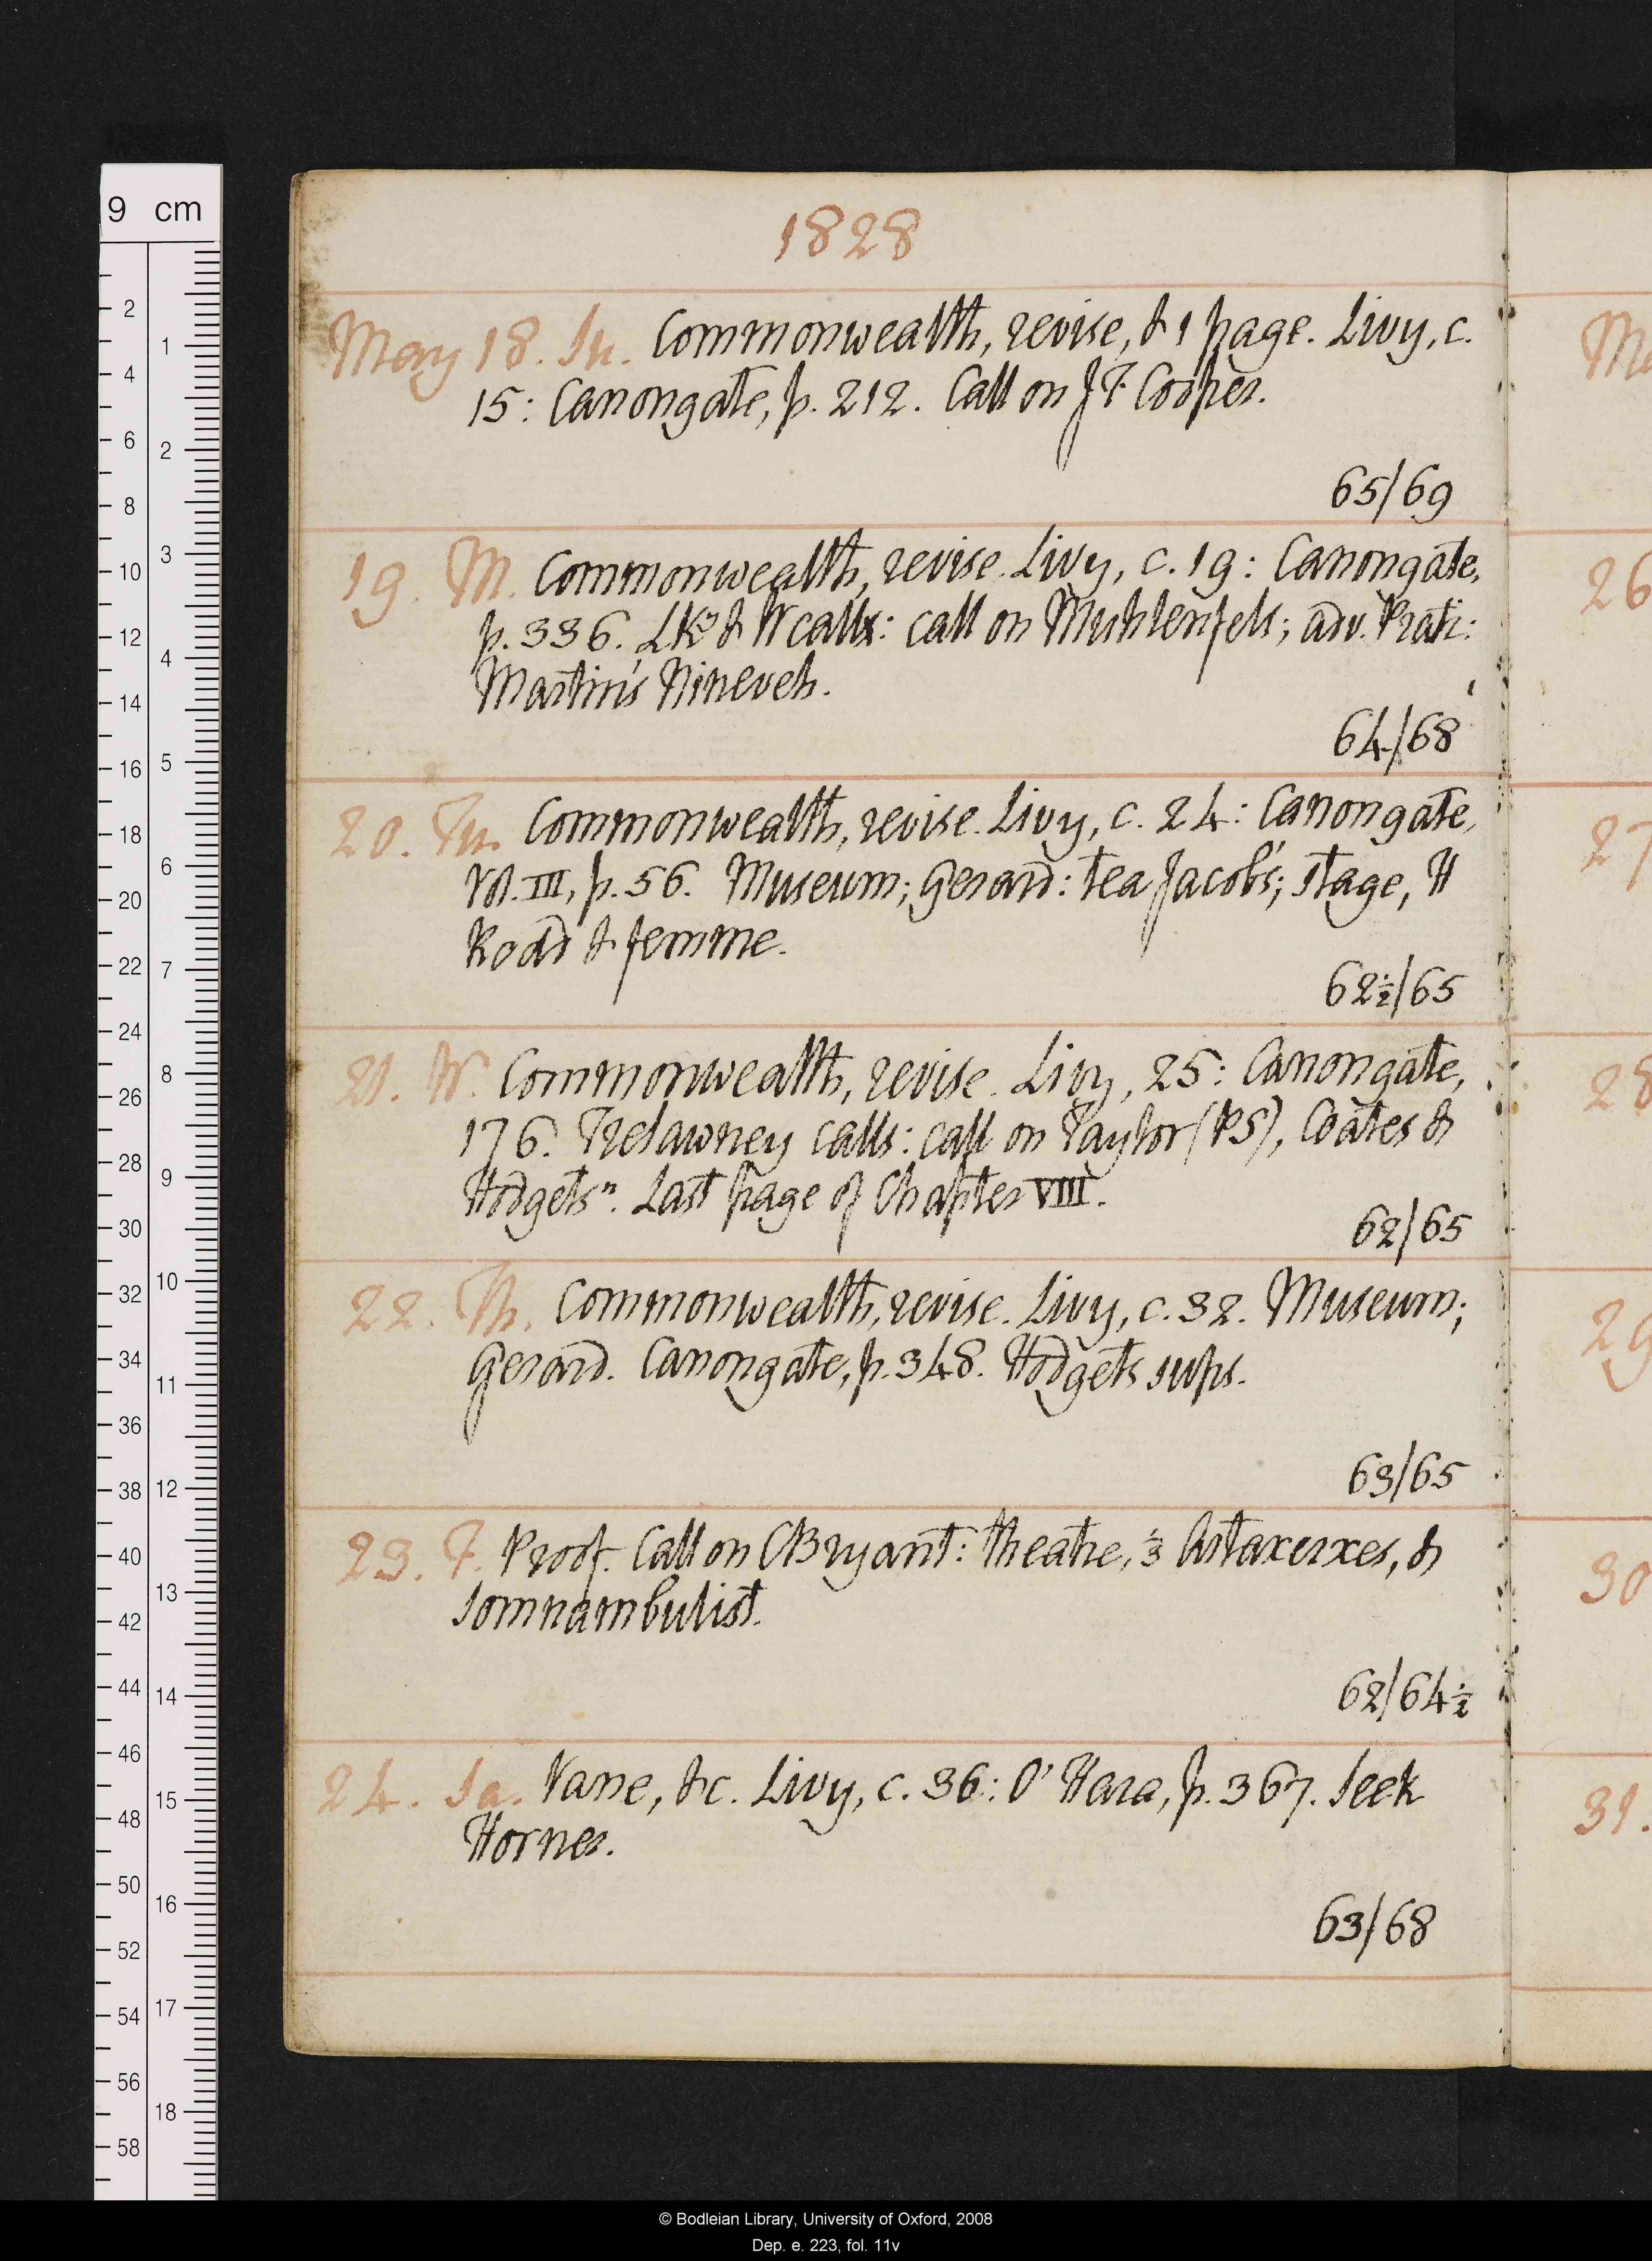 1828
May 18. Su. Commonwealth, revise, & 1 page. Livy, c.
15: Canongate, p. 212. Call on J F Cooper.
65/69
19. M. Commonwealth, revise. Livy, c. 19: Canongate,
p. 336. LK & W call: call on Muhlenfels; adv. Prati:
Martin's Nineveh.
64/68
20. Tu. Commonwealth, revise. Livy, c. 24: Canongate,
Vol. III, p. 56. Museum; Gerard: tea Jacob's; stage, H
Rodd & femme.
62½/65
21. W. Commonwealth, revise. Livy, 25: Canongate,
176. Trelawney calls: call on Taylor (PS), Coates &
Hodgetsn. Last page of Chapter VIII.
62/65
22. Th. Commonwealth, revise. Livy, c. 32. Museum;
Gerard. Canongate, p. 348. Hodgets sups.
63/65
23. F. Proof. Call on CBryant: theatre, ⅓ Artaxerxes, &
Somnambulist.
62/64½
24. Sa. Vane, &c. Livy, c. 36: O'Hara, p. 367. Seek
Hornes.
63/68
9 cm
© Bodleian Library, University of Oxford, 2008
Dep. e. 223, fol. 11v